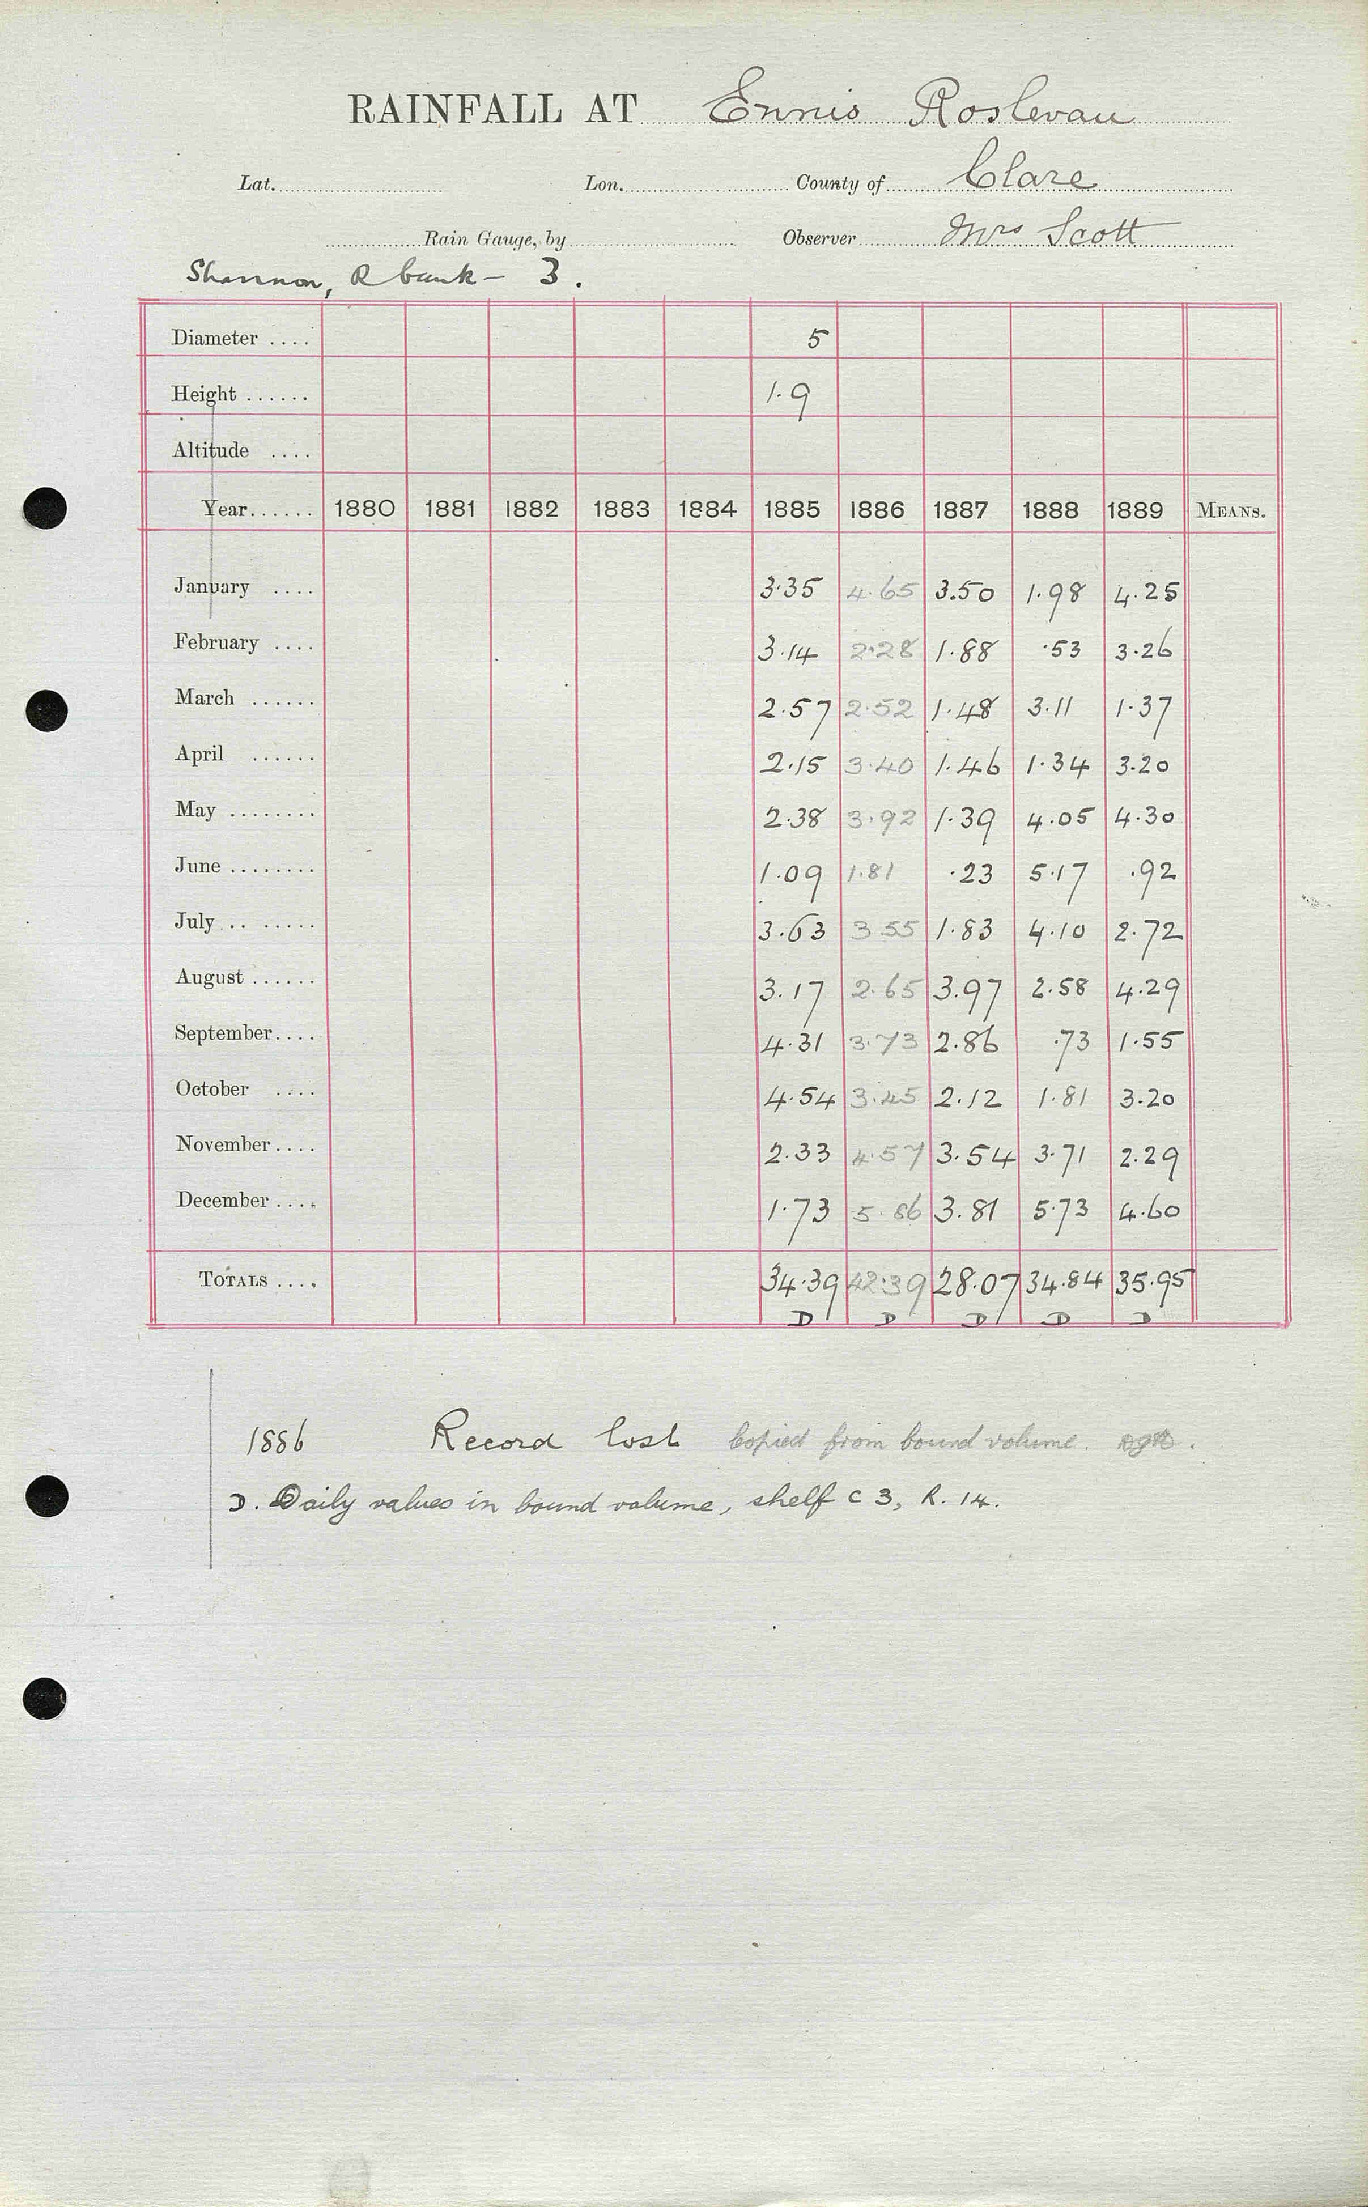 RAINFALL AT Ennis Roslevan
Lat. Lon. County of Clare
Rain Gauge, by Observer Mrs Scott
Shannon, R bank - 3.
Diameter .... 5
Height ...... 1.9
Altitude ....
Year ...... 1880 1881 1882 1883 1884 1885 1886 1887 1888 1889 MEANS.
January .... 3.35 4.65 3.50 1.98 4.25
February .... 3.14 2.28 1.88 .53 3.26
March ...... 2.57 2.52 1.48 3.11 1.37
April ...... 2.15 3.40 1.46 1.34 3.20
May ........ 2.38 3.92 1.39 4.05 4.30
June ........ 1.09 1.81 .23 5.17 .92
July ........ 3.63 3.55 1.83 4.10 2.72
August ...... 3.17 2.65 3.97 2.58 4.29
September .... 4.31 3.73 2.86 .73 1.55
October .... 4.54 3.45 2.12 1.81 3.20
November .... 2.33 4.57 3.54 3.71 2.29
December .... 1.73 5.86 3.81 5.73 4.60
TOTALS .... 34.39 42.39 28.07 34.84 35.95
D D D D D
1886 Record lost Copied from bound volume.
D. Daily values in bound volume, shelf C 3, R. 14.